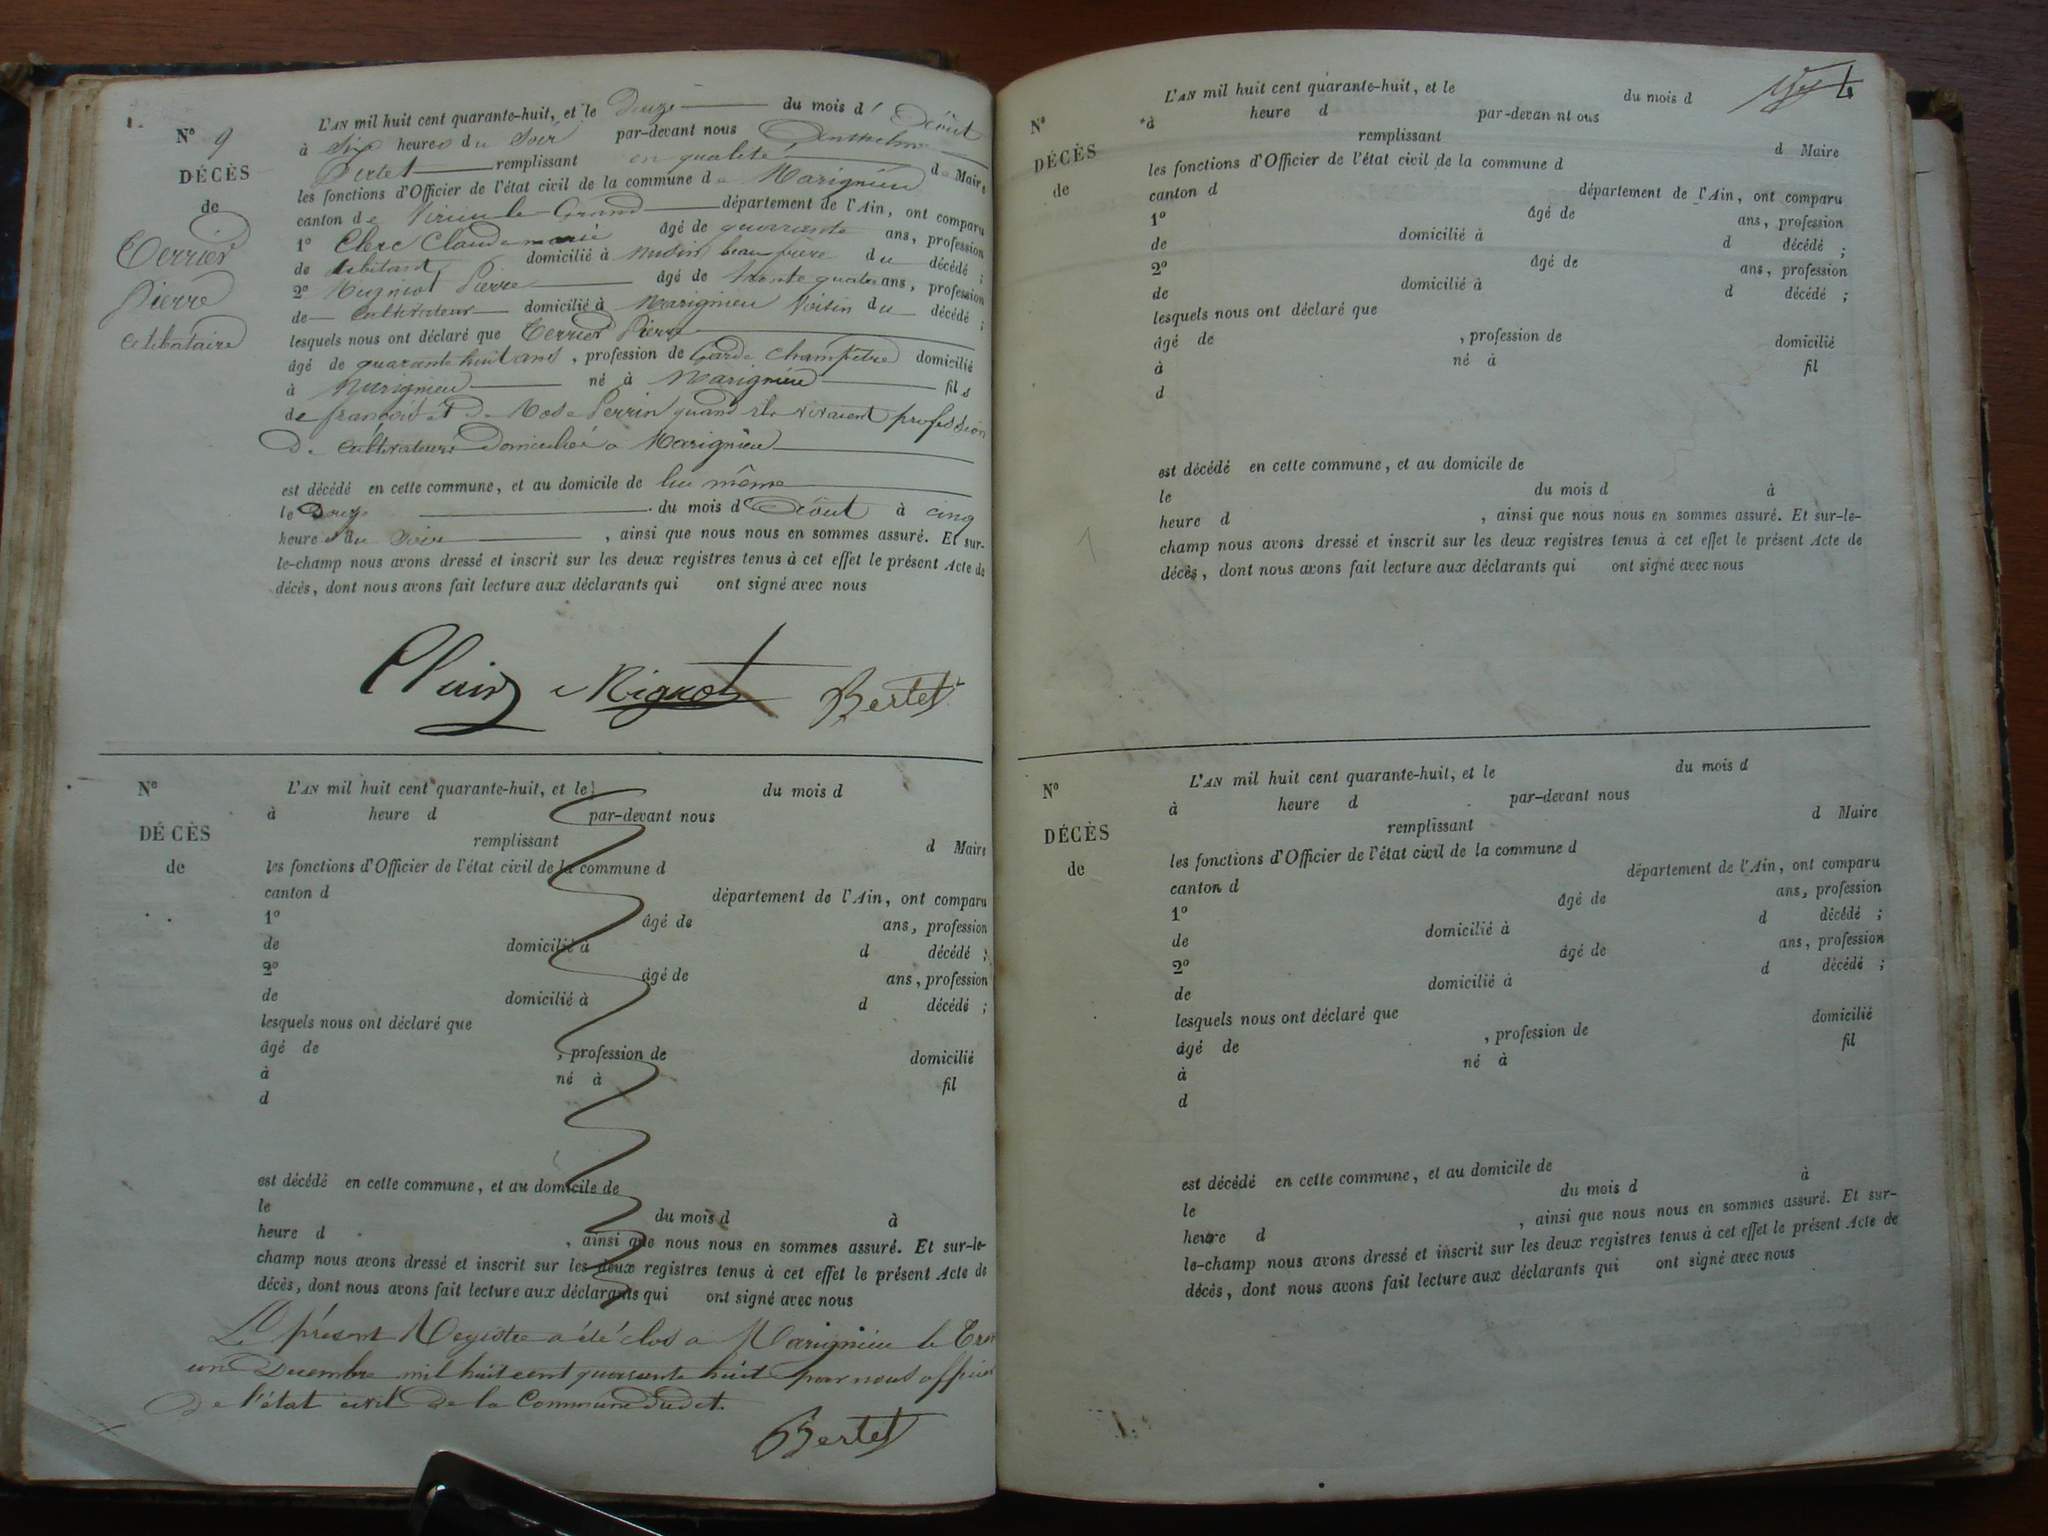 N° 9
DÉCÈS
de
Terrier
Pierre
celibataire
L'AN mil huit cent quarante-huit, et le Douze du mois d' Août
à six heures du Soir par-devant nous Anthelme
Bertet remplissant en qualité de Maire
les fonctions d'Officier de l'état civil de la commune de Marignieu
canton de Virieu le Grand département de l'Ain, ont comparu
1° Clerc Claude marie âgé de quarante ans, profession
de domicilié à beau frère du décédé ;
2° Pierre âgé de trente quatre ans, profession
de cultivateur domicilié à Marignieu Voisin du décédé ;
lesquels nous ont déclaré que Terrier Pierre
âgé de quarante huit ans , profession de Garde champêtre domicilié
à Marignieu né à Marignieu fils
de françois et de Rose Perrin quand ils vivaient profession
De cultivateurs Domiciliés a Marignieu
est décédé en cette commune, et au domicile de lui même
le Douze du mois d' Août à cinq
heures du soir , ainsi que nous nous en sommes assuré. Et sur-
le-champ nous avons dressé et inscrit sur les deux registres tenus à cet effet le présent Acte de
décès, dont nous avons fait lecture aux déclarants qui ont signé avec nous
Bertet
N°
DÉCÈS
de
L'AN mil huit cent quarante-huit, et le du mois d
à heure d par-devant nous
remplissant d Maire
les fonctions d'Officier de l'état civil de la commune d
canton d département de l'Ain, ont comparu
1° âgé de ans, profession
de domicilié à d décédé ;
2° âgé de ans, profession
de domicilié à d décédé ;
lesquels nous ont déclaré que
âgé de , profession de domicilié
à né à fil
d
est décédé en cette commune, et au domicile de
le du mois d à
heure d , ainsi que nous nous en sommes assuré. Et sur-le-
champ nous avons dressé et inscrit sur les deux registres tenus à cet effet le présent Acte de
décès, dont nous avons fait lecture aux déclarants qui ont signé avec nous
Le présent Registre a été clos a Marignieu le
un Decembre mil huit cent quarante huit par nous officier
De l'état civil De la Commune dudit.
Bertet
N°
DÉCÈS
de
L'AN mil huit cent quarante-huit, et le du mois d
à heure d par-devan nt ous
remplissant d Maire
les fonctions d'Officier de l'état civil de la commune d
canton d département de l'Ain, ont comparu
1° âgé de ans, profession
de domicilié à d décédé ;
2° âgé de ans, profession
de domicilié à d décédé ;
lesquels nous ont déclaré que
âgé de , profession de domicilié
à né à fil
d
est décédé en cette commune, et au domicile de
le du mois d à
heure d , ainsi que nous nous en sommes assuré. Et sur-le-
champ nous avons dressé et inscrit sur les deux registres tenus à cet effet le présent Acte de
décès, dont nous avons fait lecture aux déclarants qui ont signé avec nous
N°
DÉCÈS
de
L'AN mil huit cent quarante-huit, et le du mois d
à heure d par-devant nous
remplissant d Maire
les fonctions d'Officier de l'état civil de la commune d
canton d département de l'Ain, ont comparu
1° âgé de ans, profession
de domicilié à d décédé ;
2° âgé de ans, profession
de domicilié à d décédé ;
lesquels nous ont déclaré que
âgé de , profession de domicilié
à né à fil
d
est décédé en cette commune, et au domicile de
le du mois d à
heure d , ainsi que nous nous en sommes assuré. Et sur-
le-champ nous avons dressé et inscrit sur les deux registres tenus à cet effet le présent Acte de
décès, dont nous avons fait lecture aux déclarants qui ont signé avec nous